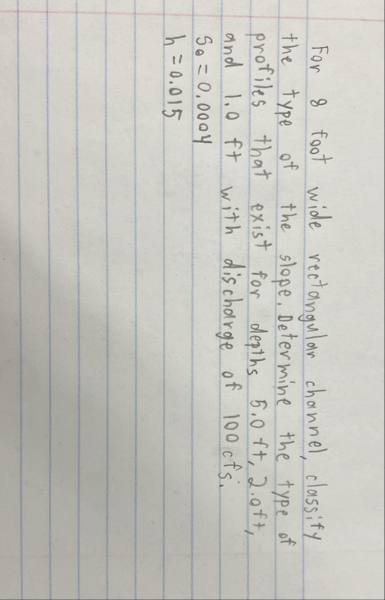 For 8 foot wide rectangular channel, classify
the type of the slope. Determine the type of
profiles that exist for depths 5.0 ft, 2.0ft,
and 1.0 ft with discharge of 100 cfs.
S₀ = 0.0004
h = 0.015